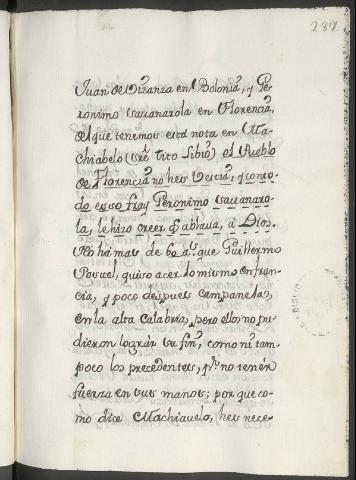 287
Juan de Vizanza en Bolonia, y Pe-
ronimo Savanarola en Florencia,
del que tenemos esta nota en Ma-
chiabelo (sre Tito Libio) el Pueblo
de Florencia no hes bestia, y conto-
do esso fray Peronimo Savanaro-
la, le hizo creer q hablava, a Dios.
No ha mas de 60 as que Guillermo
Postel, quiso acer lo mismo en fran-
cia, y poco despues campanela,
en la alta Calabria, pero ello no pu-
dieron lograr su fin, como ni tam-
poco los precedentes, pr no tenér
fuerza en sus manos; por que co-
mo dice Machiavelo, hes nece-